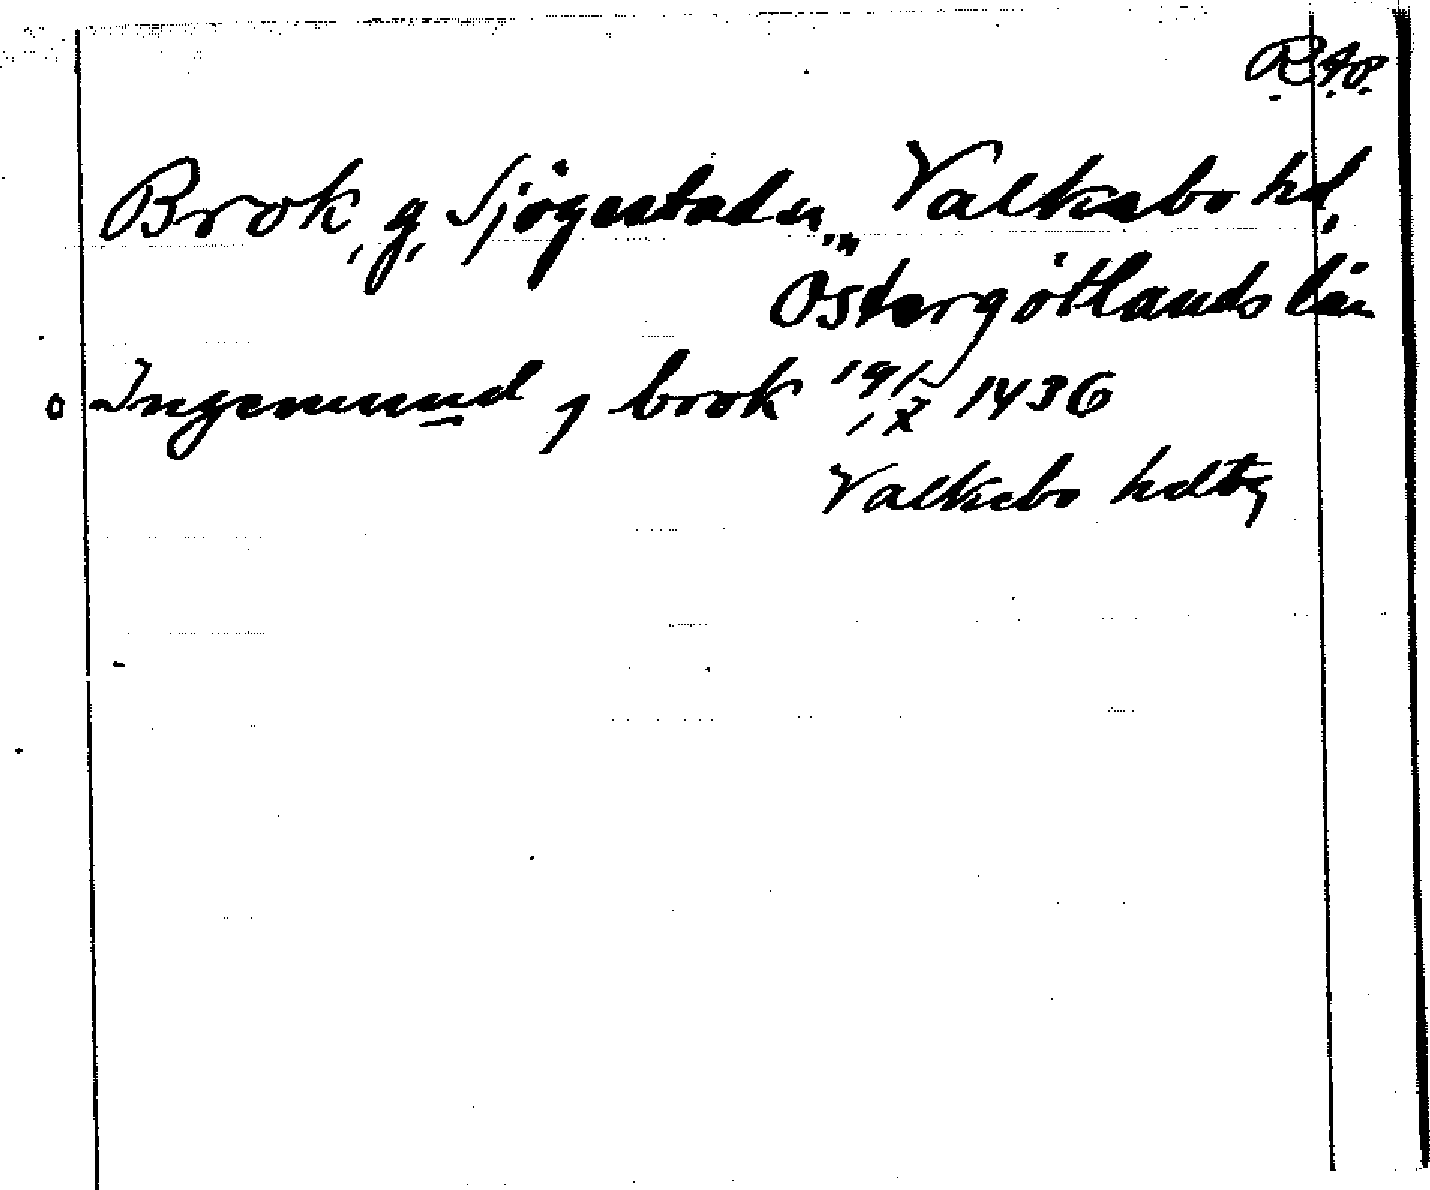 Brok, g, Sjögestads sn, Valkebo hd,
Östergötlands län
Ingemund j brok 19/X 1436
Valkebo hdtg